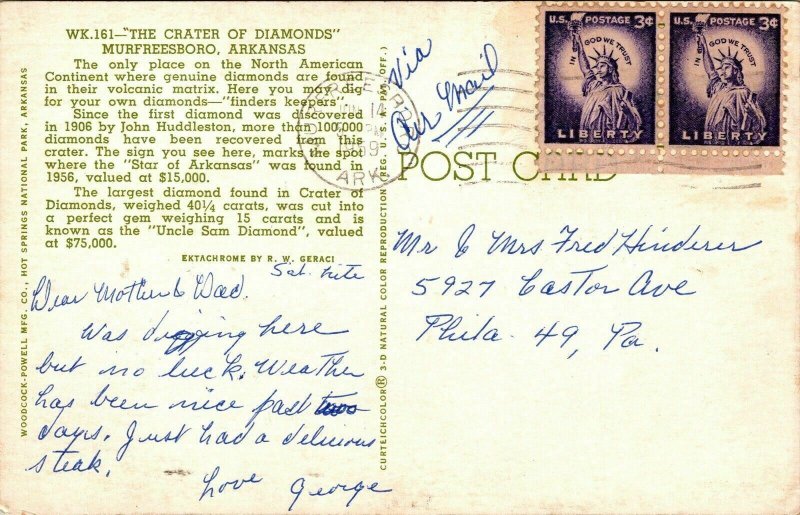 WK.161—"THE CRATER OF DIAMONDS"
MURFREESBORO, ARKANSAS
The only place on the North American
Continent where genuine diamonds are found
in their volcanic matrix. Here you may dig
for your own diamonds—"finders keepers".
Since the first diamond was discovered
in 1906 by John Huddleston, more than 100,000
diamonds have been recovered from this
crater. The sign you see here, marks the spot
where the "Star of Arkansas" was found in
1956, valued at $15,000.
The largest diamond found in Crater of
Diamonds, weighed 40¼ carats, was cut into
a perfect gem weighing 15 carats and is
known as the "Uncle Sam Diamond", valued
at $75,000.
EKTACHROME BY R. W. GERACI
Sat. nite
Dear Mother & Dad.
Was digging here
but no luck. Weather
has been nice past two
days. Just had a delicious
steak.
Love George
WOODCOCK-POWELL MFG. CO., HOT SPRINGS NATIONAL PARK, ARKANSAS
CURTEICHCOLOR® 3-D NATURAL COLOR REPRODUCTION (REG. U. S. A. PAT. OFF.)
Via
Air Mail
ARK
POST CARD
U.S. POSTAGE 3¢
IN GOD WE TRUST
LIBERTY
U.S. POSTAGE 3¢
IN GOD WE TRUST
LIBERTY
Mr & Mrs Fred Hinderer
5927 Castor Ave
Phila. 49, Pa.